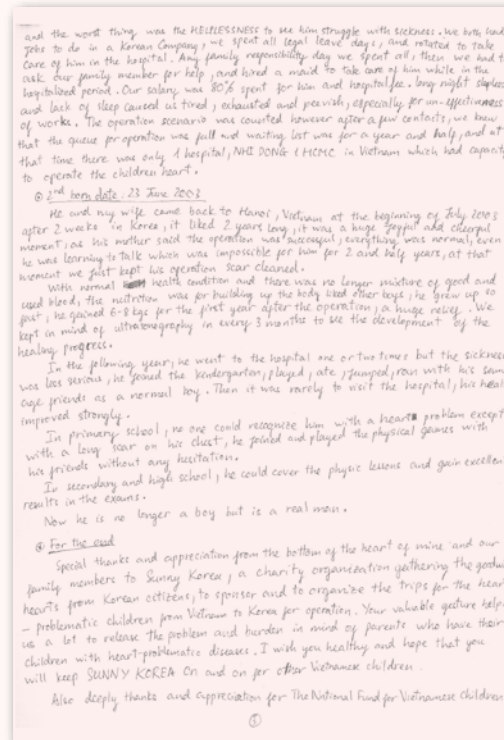 and the worst thing was the HELPLESSNESS to see him struggle with sickness. We both had
jobs to do in a Korean Company, we spent all legal leave days, and rotated to take
care of him in the hospital. Any family responsibility day we spent all, then we had to
ask our family member for help, and hired a maid to take care of him while in the
hospitalized period. Our salary was 80% spent for him and hospital fee. Long night sleepless
and lack of sleep caused us tired, exhausted and peevish, especially for un-effectiveness
of works. The operation scenario was counted however after a few contacts, we knew
that the queue for operation was full and waiting list was for a year and half, and at
that time there was only 1 hospital, NHI DONG 1 HCMC in Vietnam which had capacity
to operate the children heart.
② 2nd born date: 23 June 2003
He and my wife came back to Hanoi, Vietnam at the beginning of July 2003
after 2 weeks in Korea, it liked 2 years long, it was a huge joyful and cheerful
moment, as his mother said the operation was successful, everything was normal, even
he was learning to talk which was impossible for him for 2 and half years, at that
moment we just kept his operation scar cleaned.
With normal health condition and there was no longer mixture of good and
used blood, the nutrition was for building up the body liked other boys, he grew up so
fast, he gained 6-8 kgs for the first year after the operation, a huge relief. We
kept in mind of ultrasonography in every 3 months to see the development of the
healing progress.
In the following year, he went to the hospital one or two times but the sickness
was less serious, he joined the kindergarten, played, ate, jumped, ran with his same
age friends as a normal boy. Then it was rarely to visit the hospital, his health
improved strongly.
In primary school, no one could recognize him with a heart problem except
with a long scar on his chest, he joined and played the physical games with
his friends without any hesitation.
In secondary and high school, he could cover the physic lessons and gain excellent
results in the exams.
Now he is no longer a boy but is a real man.
@ For the end
Special thanks and appreciation from the bottom of the heart of mine and our
family members to Sunny Korea, a charity organization gathering the goodwill
hearts from Korean citizens, to sponsor and to organize the trips for the heart
- problematic children from Vietnam to Korea for operation. Your valuable gesture helps
us a lot to release the problem and burden in mind of parents who have their
children with heart-problematic diseases. I wish you healthy and hope that you
will keep SUNNY KOREA On and on for other Vietnamese children.
Also deeply thanks and appreciation for The National Fund for Vietnamese Children